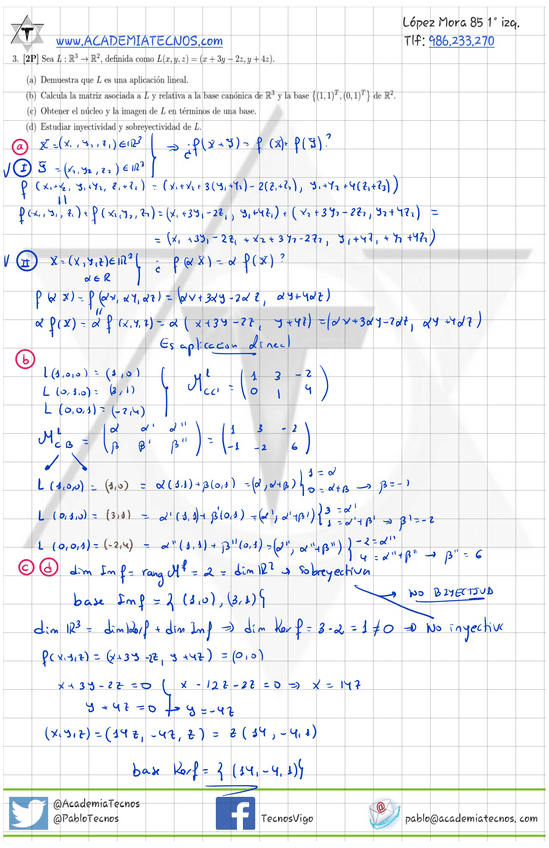 López Mora 85 1° izq.
Tlf: 986.233.270
T
www.ACADEMIATECNOS.com
3. [2P] Sea L : ℝ³ → ℝ², definida como L(x, y, z) = (x + 3y − 2z, y + 4z).
(a) Demuestra que L es una aplicación lineal.
(b) Calcula la matriz asociada a L y relativa a la base canónica de ℝ³ y la base {(1, 1)ᵀ, (0, 1)ᵀ} de ℝ².
(c) Obtener el núcleo y la imagen de L en términos de una base.
(d) Estudiar inyectividad y sobreyectividad de L.
(a) x̄=(x₁, y₁, z₁) ∈ ℝ³ ⇒ ¿f(x̄+ȳ) = f(x̄)+f(ȳ)?
√ (I) ȳ=(x₂, y₂, z₂) ∈ ℝ³
f(x₁+x₂, y₁+y₂, z₁+z₂) = (x₁+x₂+3(y₁+y₂)-2(z₁+z₂), y₁+y₂+4(z₁+z₂))
f(x₁,y₁,z₁)+f(x₂,y₂,z₂) = (x₁+3y₁-2z₁, y₁+4z₁)+(x₂+3y₂-2z₂, y₂+4z₂) =
= (x₁+3y₁-2z₁+x₂+3y₂-2z₂, y₁+4z₁+y₂+4z₂)
√ (II) x̄=(x,y,z)∈ℝ³ ¿f(αx̄)=αf(x̄)?
α∈ℝ
f(αx̄)=f(αx,αy,αz)=(αx+3αy-2αz, αy+4αz)
αf(x̄)=αf(x,y,z)=α(x+3y-2z, y+4z)=(αx+3αy-2αz, αy+4αz)
Es aplicación lineal
(b)
L(1,0,0)=(1,0)
L(0,1,0)=(3,1)
L(0,0,1)=(-2,4)
M^L_CC' = (1 3 -2
0 1 4)
M^L_CB = (α α' α'' = (1 3 -2
β β' β'') -1 -2 6)
L(1,0,0)=(1,0) = α(1,1)+β(0,1) =(α,α+β) { 1=α
0=α+β → β=-1
L(0,1,0)=(3,1) = α'(1,1)+β'(0,1)=(α',α'+β') { 3=α'
1=α'+β' → β'=-2
L(0,0,1)=(-2,4) = α''(1,1)+β''(0,1)=(α'',α''+β'') { -2=α''
4=α''+β'' → β''=6
(c) (d) dim Imf = rang M^L = 2 = dim ℝ² → Sobreyectiva
→ NO BIYECTIVA
base Imf = {(1,0), (3,1)}
dim ℝ³ = dim Kerf + dim Imf ⇒ dim Kerf = 3-2 = 1 ≠ 0 ⇒ No inyectiva
f(x,y,z)=(x+3y-2z, y+4z) = (0,0)
x+3y-2z=0 { x-12z-2z=0 ⇒ x=14z
y+4z=0 → y=-4z
(x,y,z)=(14z,-4z,z) = z(14,-4,1)
base Kerf = {(14,-4,1)}
@AcademiaTecnos
@PabloTecnos
TecnosVigo
pablo@academiatecnos.com